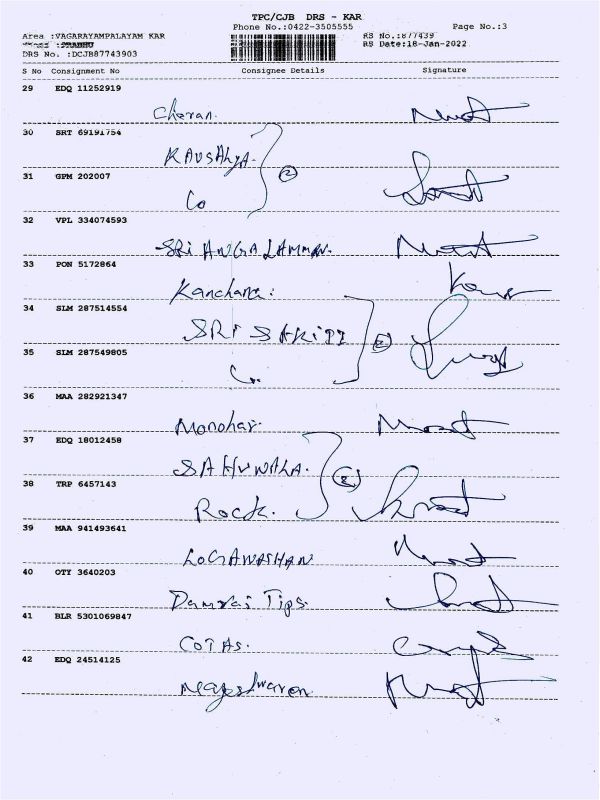 TPC/CJB DRS - KAR
Phone No.:0422-3505555 Page No.:3
Area :VAGARAYAMPALAYAM KAR RS No.:877439
:PRABHU RS Date:18-Jan-2022
DRS No. :DCJB87743903
S No Consignment No Consignee Details Signature
29 EDQ 11252919
Charan.
30 SRT 69191754
KAUSALYA. 2
31 GPM 202007
Co
32 VPL 334074593
SRI ANGALAMMAN.
33 PON 5172864
Kanchana.
34 SLM 287514554
SRI SAKITI 2
35 SLM 287549805
Co.
36 MAA 282921347
Manohar.
37 EDQ 18012458
SAHUWALA. 2
38 TRP 6457143
Rock.
39 MAA 941493641
40 OTY 3640203
Tips.
41 BLR 5301069847
COTAS.
42 EDQ 24514125
Mageshwaran